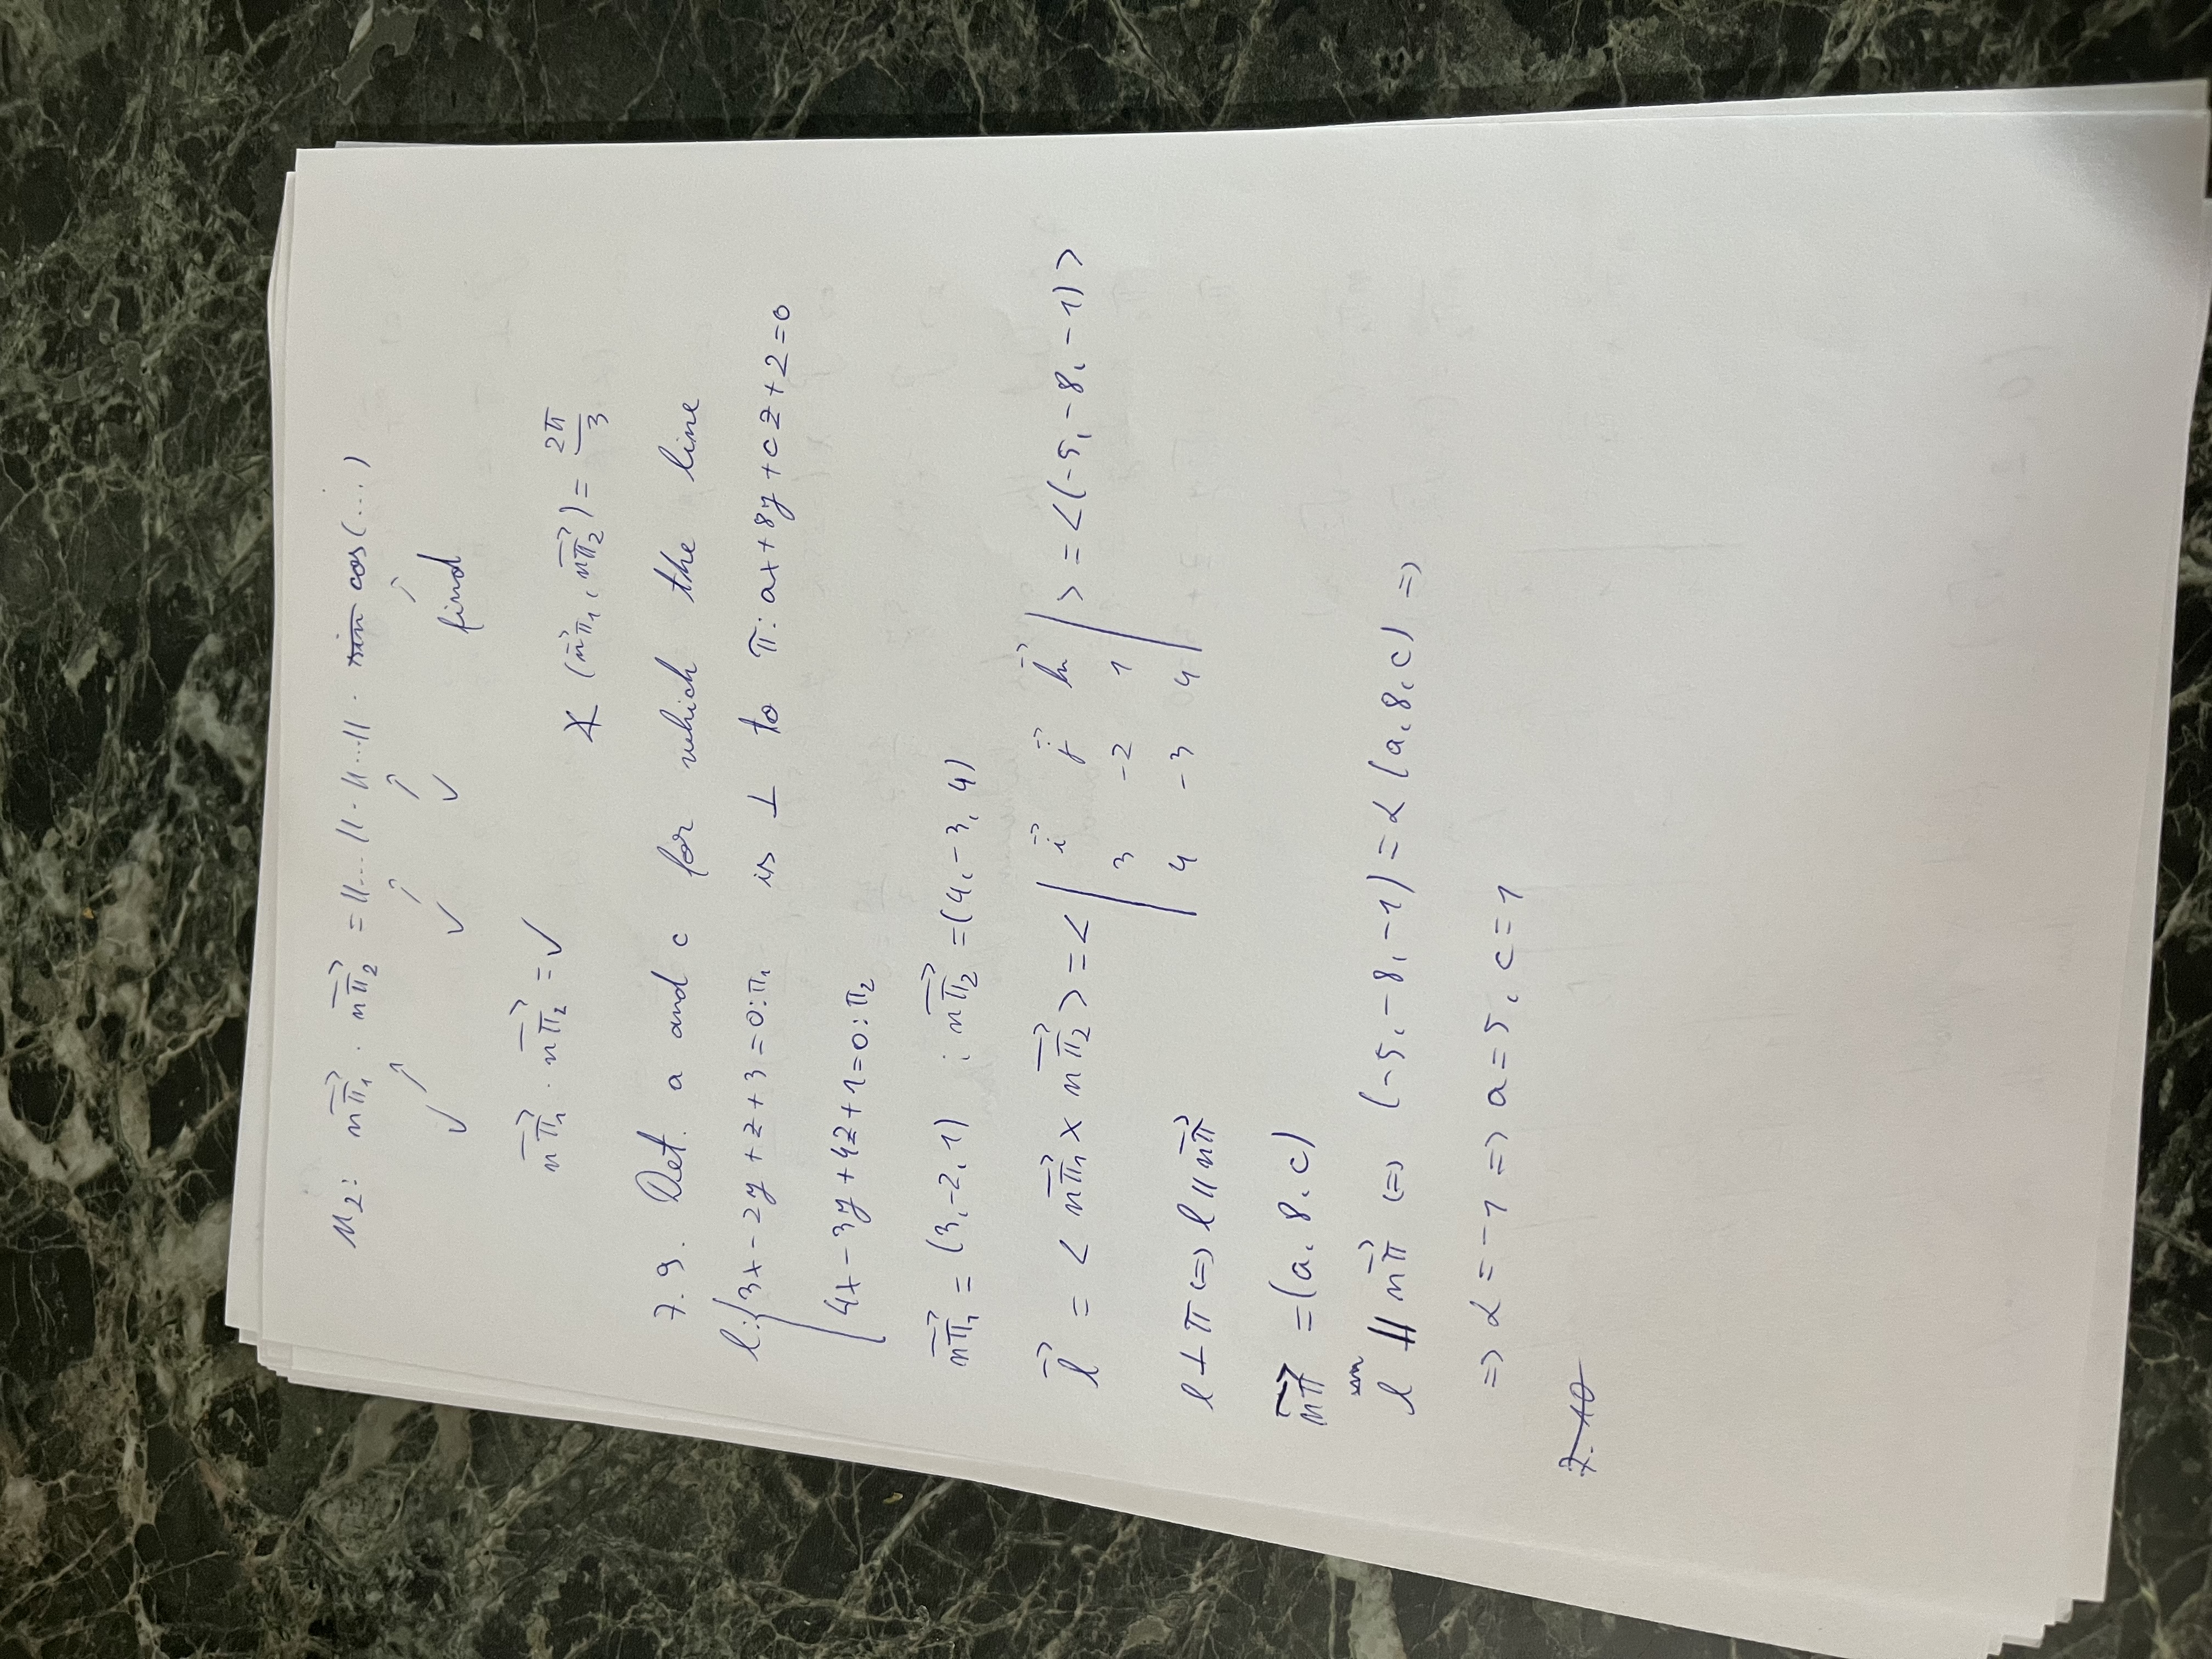 M2: nπ₁ · nπ₂ = ||...|| · ||...|| · sin cos(...)
✓ ✓ ✓ find
nπ₁ · nπ₂ = ✓
∡ (nπ₁, nπ₂) = 2π/3
7.9. Det. a and c for which the line
l: { 3x - 2y + z + 3 = 0 : π₁ is ⊥ to π: ax + 8y + cz + 2 = 0
4x - 3y + 4z + 1 = 0 : π₂
nπ₁ = (3, -2, 1) ; nπ₂ = (4, -3, 4)
l = < nπ₁ × nπ₂ > = < | i j k | > = <(-5, -8, -1)>
3 -2 1
4 -3 4
l ⊥ π <=> l || nπ
nπ = (a, 8, c)
l || nπ <=> (-5, -8, -1) = α (a, 8, c) =>
=> α = -1 => a = 5, c = 1
7.10